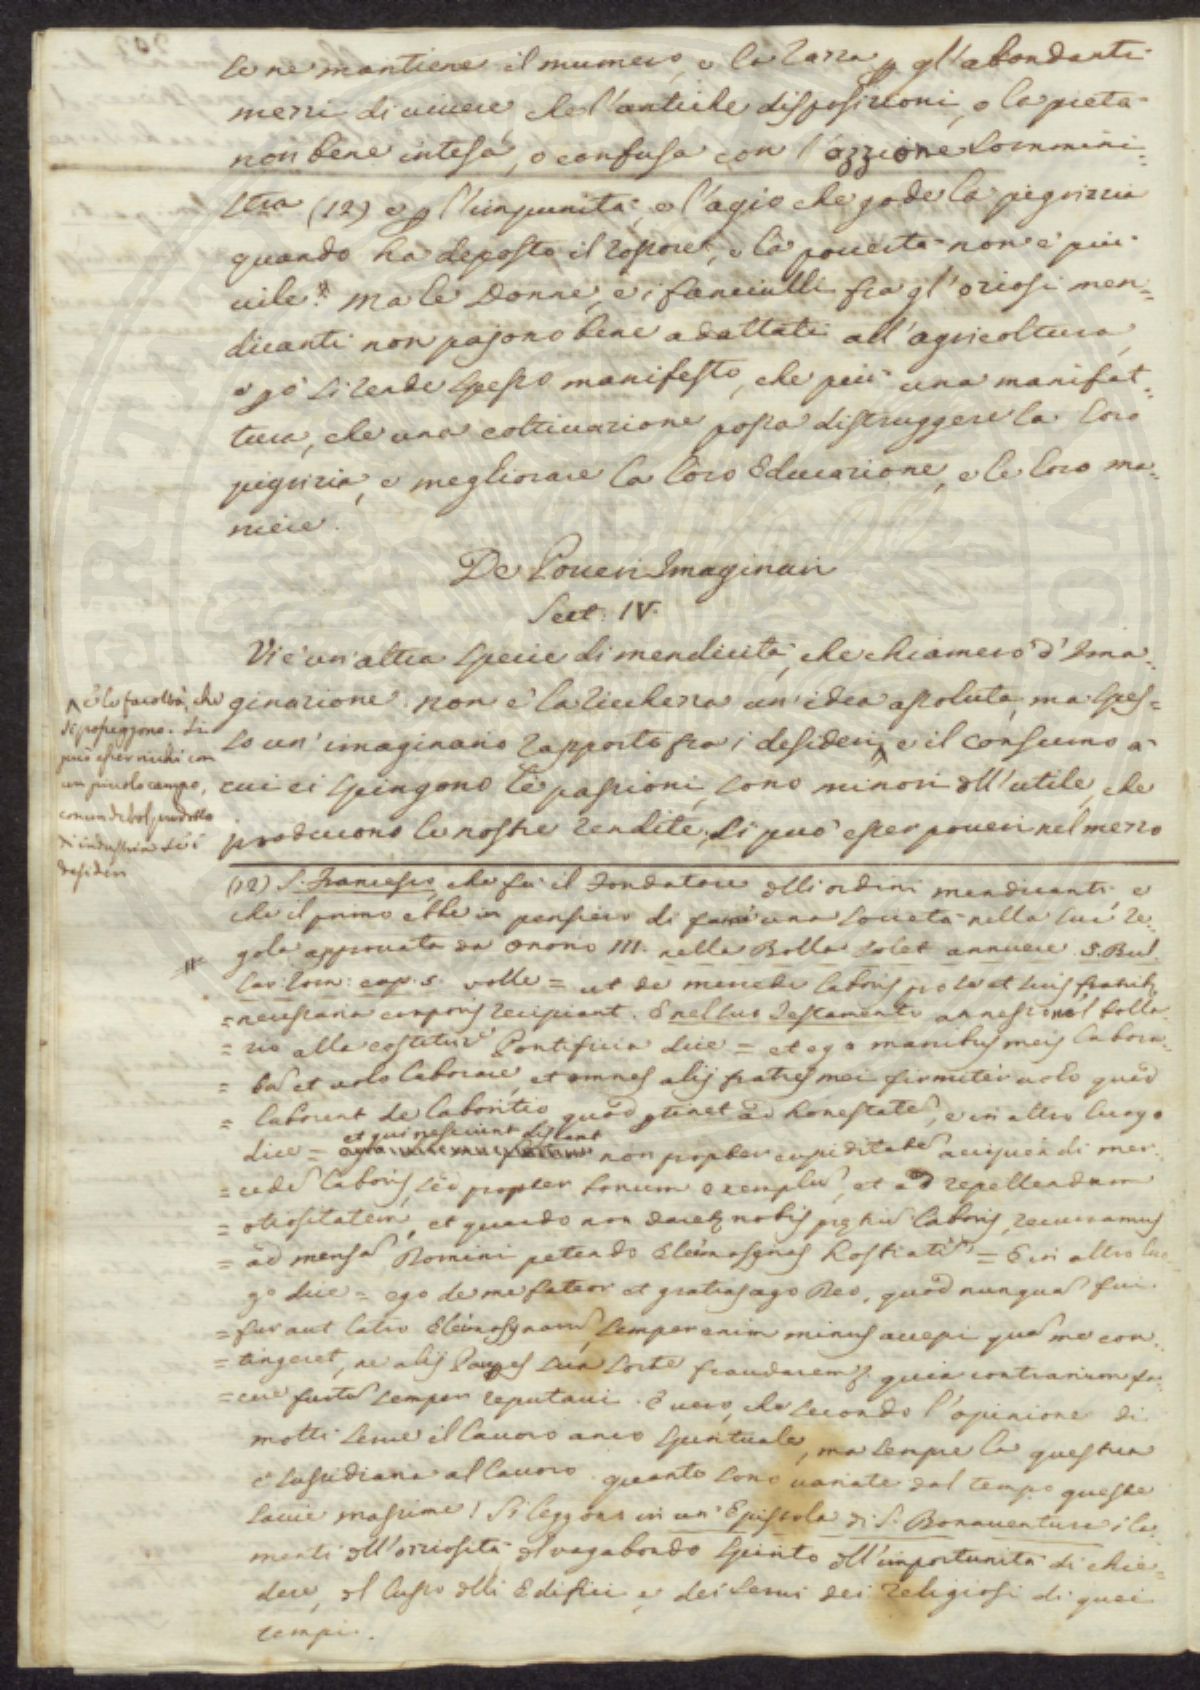 se ne mantiene il numero, e la razza p gl'abondanti
mezzi di vivere, che l'antiche disposizioni, e la pietà
non bene intesa, o confusa con l'ozzione sommini-
stra (12) e p l'impunità, e l'agio che gode la pigrizzia
quando ha deposto il rossore, e la povertà non è più
vile? Ma le Donne, e i fanciulli fra gl'oziosi men=
dicanti non pajono bene adattati all'agricoltura,
e pò si rende spesso manifesto, che più una manifat=
tura, che una coltivazione possa distruggere la loro
pigrizia, e megliorare la loro Educazione, e le loro ma=
niere.
De Poveri Imaginari
Sect: IV.
Vi è un'altra specie di mendicità, che chiamerò d'Ima=
ginazione. non è la ricchezza un'idea assoluta, ma spes=
so un'imaginario rapporto fra i desideri, e il consumo a
cui ci spingono le passioni, sono minori dell'utile, che
producono le nostre rendite. Si può esser poveri nel mezzo
e le facoltà, che
si posseggono. Si
può esser ricchi con
un piccolo campo,
con un debol prodotto
d'industria se i
desideri
(12) S. Francesco, che fu il Fondatore delli ordini mendicanti, e
che il primo ebbe in pensiero di farne una Società nella sua re
gola approvata da Onorio III. nella Bolla Solet annuere. S. Bul
lar: Rom: cap. 5. volle = ut de mercede laboris pro se et suis fratribq
= necessaria corporis recipiant. E nel suo Testamento annesso nel bolla=
= rio alla costituz Pontificia dice = et ego manibus meis labora=
= bã et volo laborare, et omnes alij fratres mei firmiter volo quod
= laborent de laboritio quod ptinet ad honestatẽ, e in altro luogo
dice = et qui nesciunt discant non propter cupiditatẽ accipiendi mer=
= cedẽ laboris, sed propter bonum exemplũ, et ad repellendum
= otiositatem, et quando non daretq nobis prętiũ laboris, recurramus
= ad mensã Domini petendo Eleemosynas hostiatĩ = E in altro luo
go dice = ego de me fateor et gratias ago Deo, quod nunquã fui
= fur aut latro Eleemosynarũ, semper enim minus accepi quã me con=
= tingeret, ne alij Paupes sua sorte fraudarentq quia contrarium fa=
= cere furtũ semper reputavi. È vero, che secondo l'opinione di
molti serve il lavoro anco spirituale, ma sempre la questua
è sussidiaria al lavoro. quanto sono variate dal tempo queste
savie massime! Si leggono in un'Epistola di S. Bonaventura i la=
menti dell'oziosità del vagabondo spirito dell'importunità di chie=
dere, del lusso delli Edifizi e dei dei Religiosi di quei
tempi.